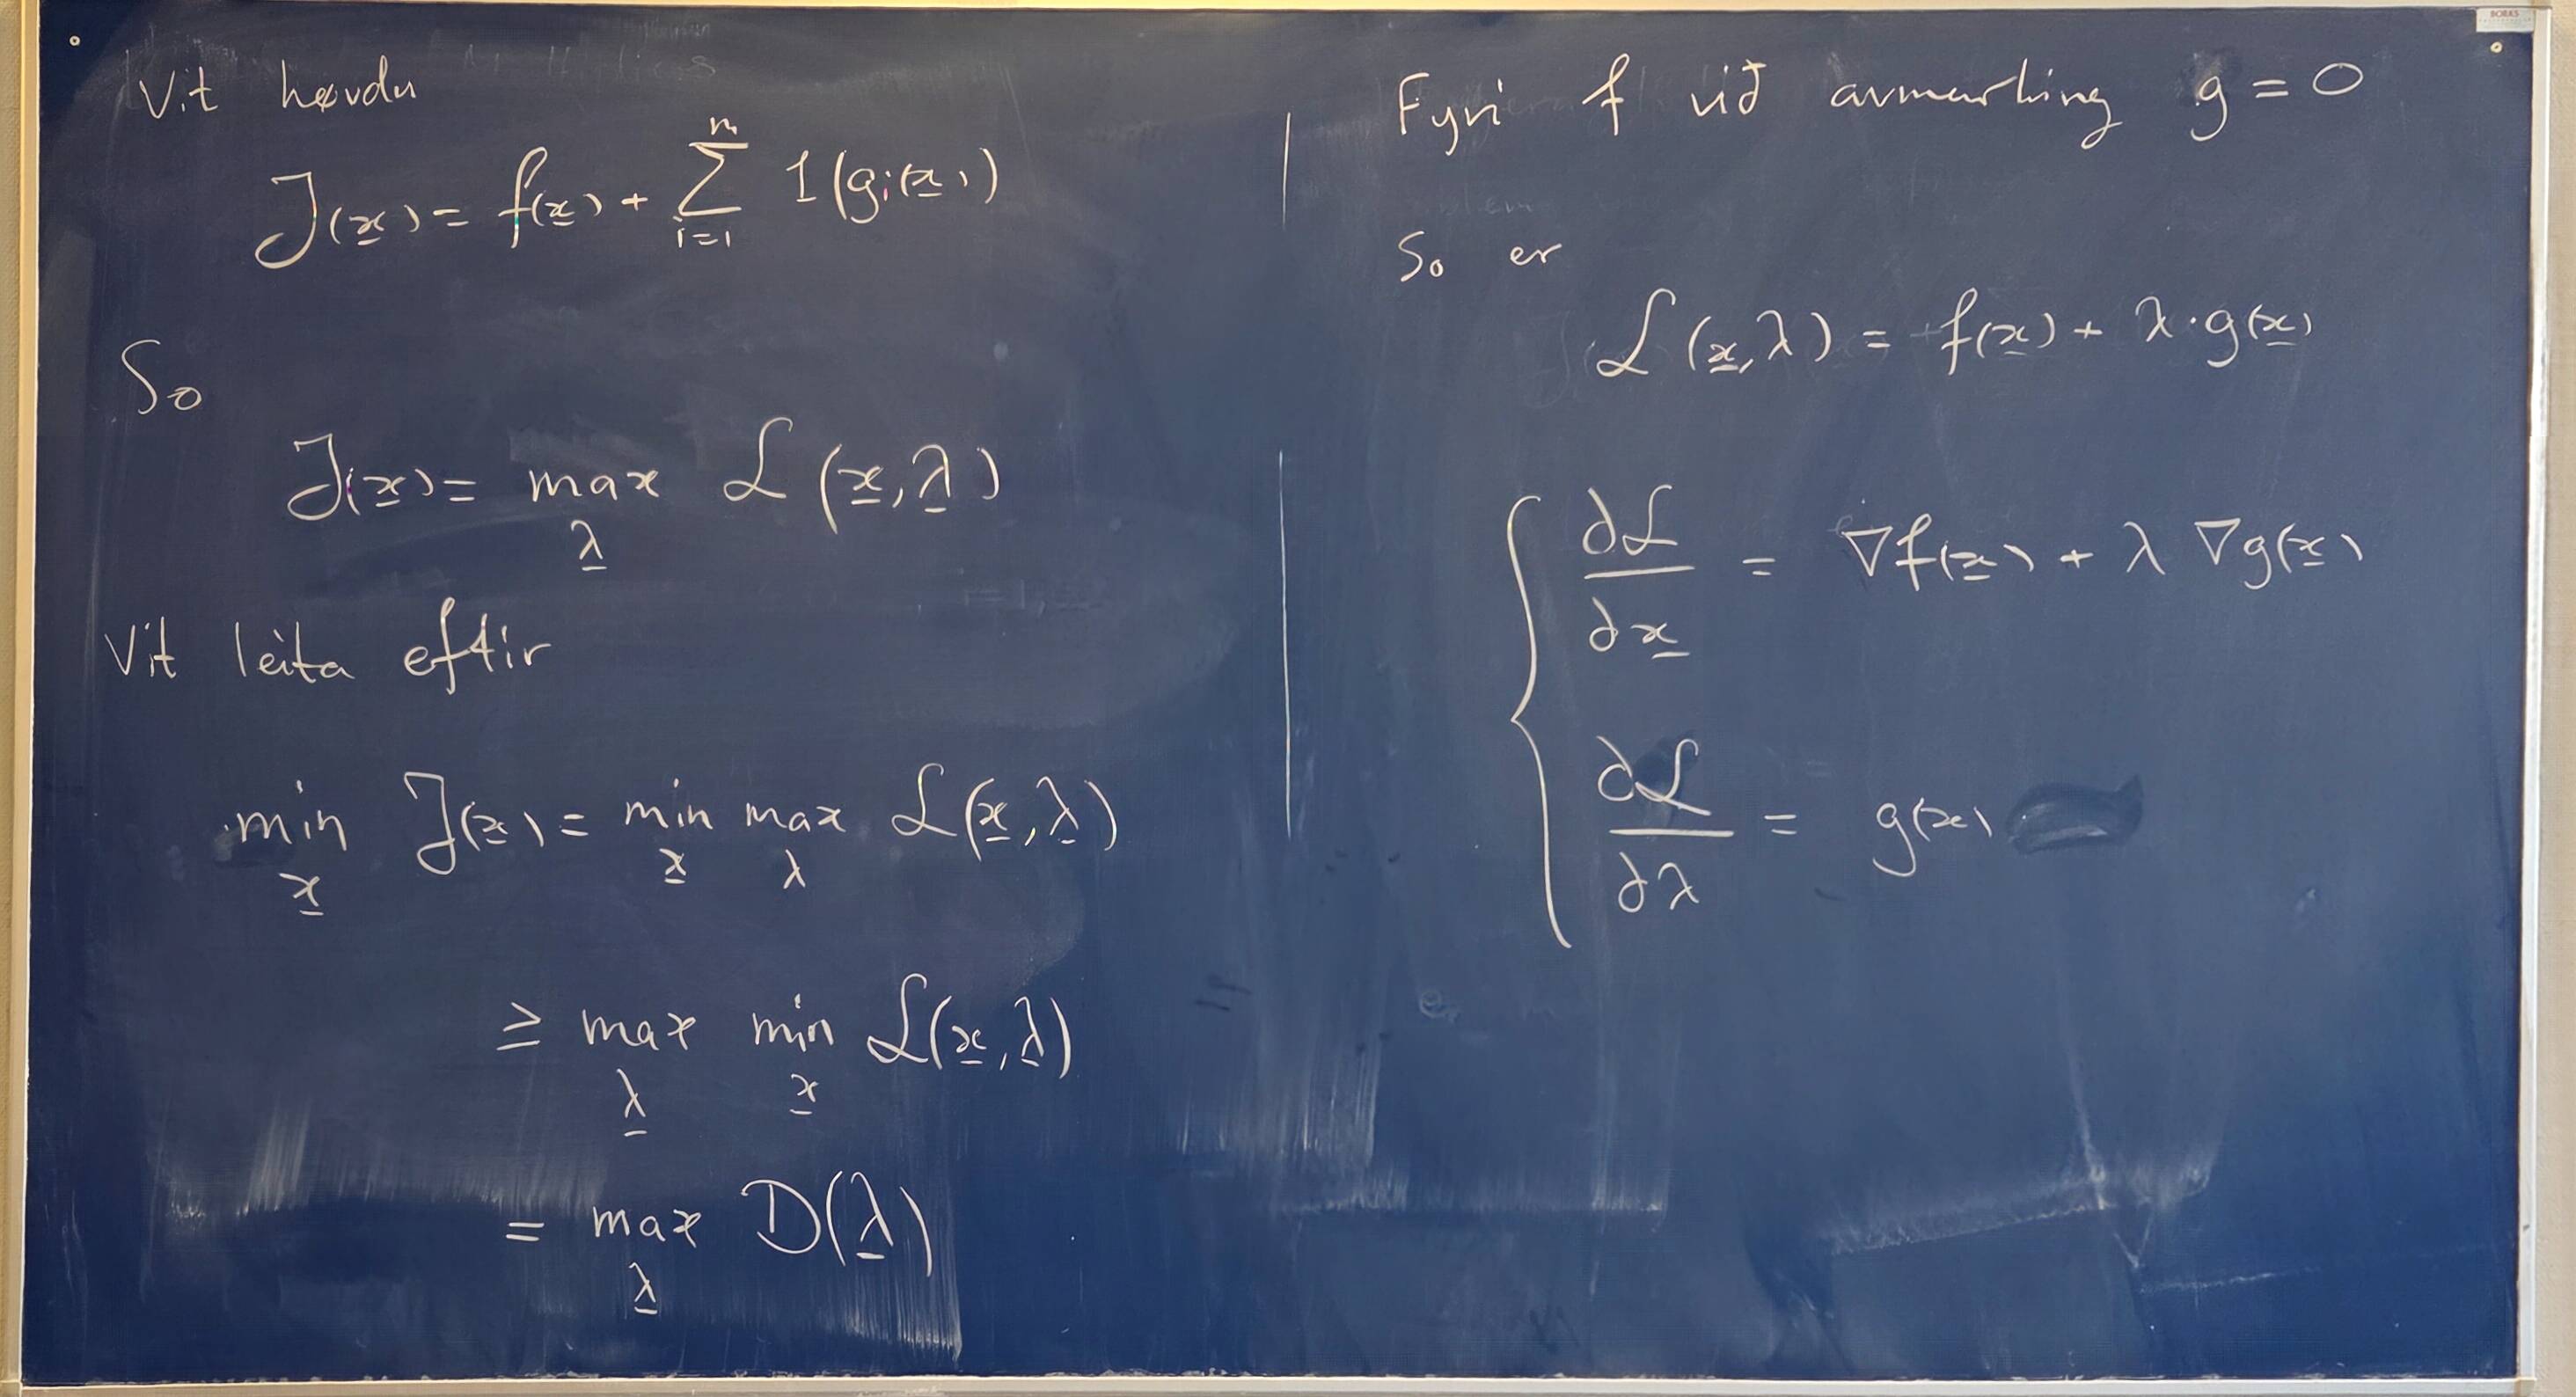 Vit høvdu
J(x) = f(x) + Σ_{i=1}^{m} 1(g_i(x))
So
J(x) = max_λ L(x, λ)
Vit leita eftir
min_x J(x) = min_x max_λ L(x, λ)
≥ max_λ min_x L(x, λ)
= max_λ D(λ)
Fyri f við avmarking g = 0
So er
L(x, λ) = f(x) + λ · g(x)
∂L/∂x = ∇f(x) + λ ∇g(x)
∂L/∂λ = g(x)
BORKS